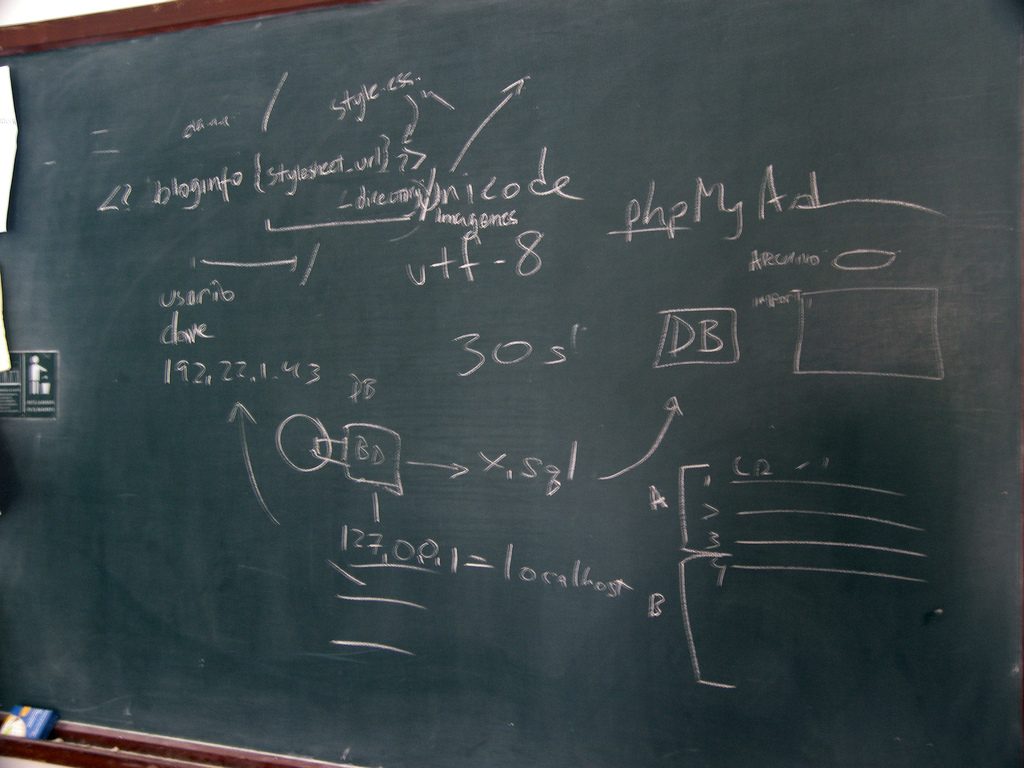 style.css
<? bloginfo {stylesheet_url} ?>
_directory/
imagenes
unicode
utf-8
phpMyAd
Archivo
import
usuario
clave
192.22.1.43
30s'
DB
DB
BD
x.sql
127.0.0.1 = localhost
A
1
2
3
4
B